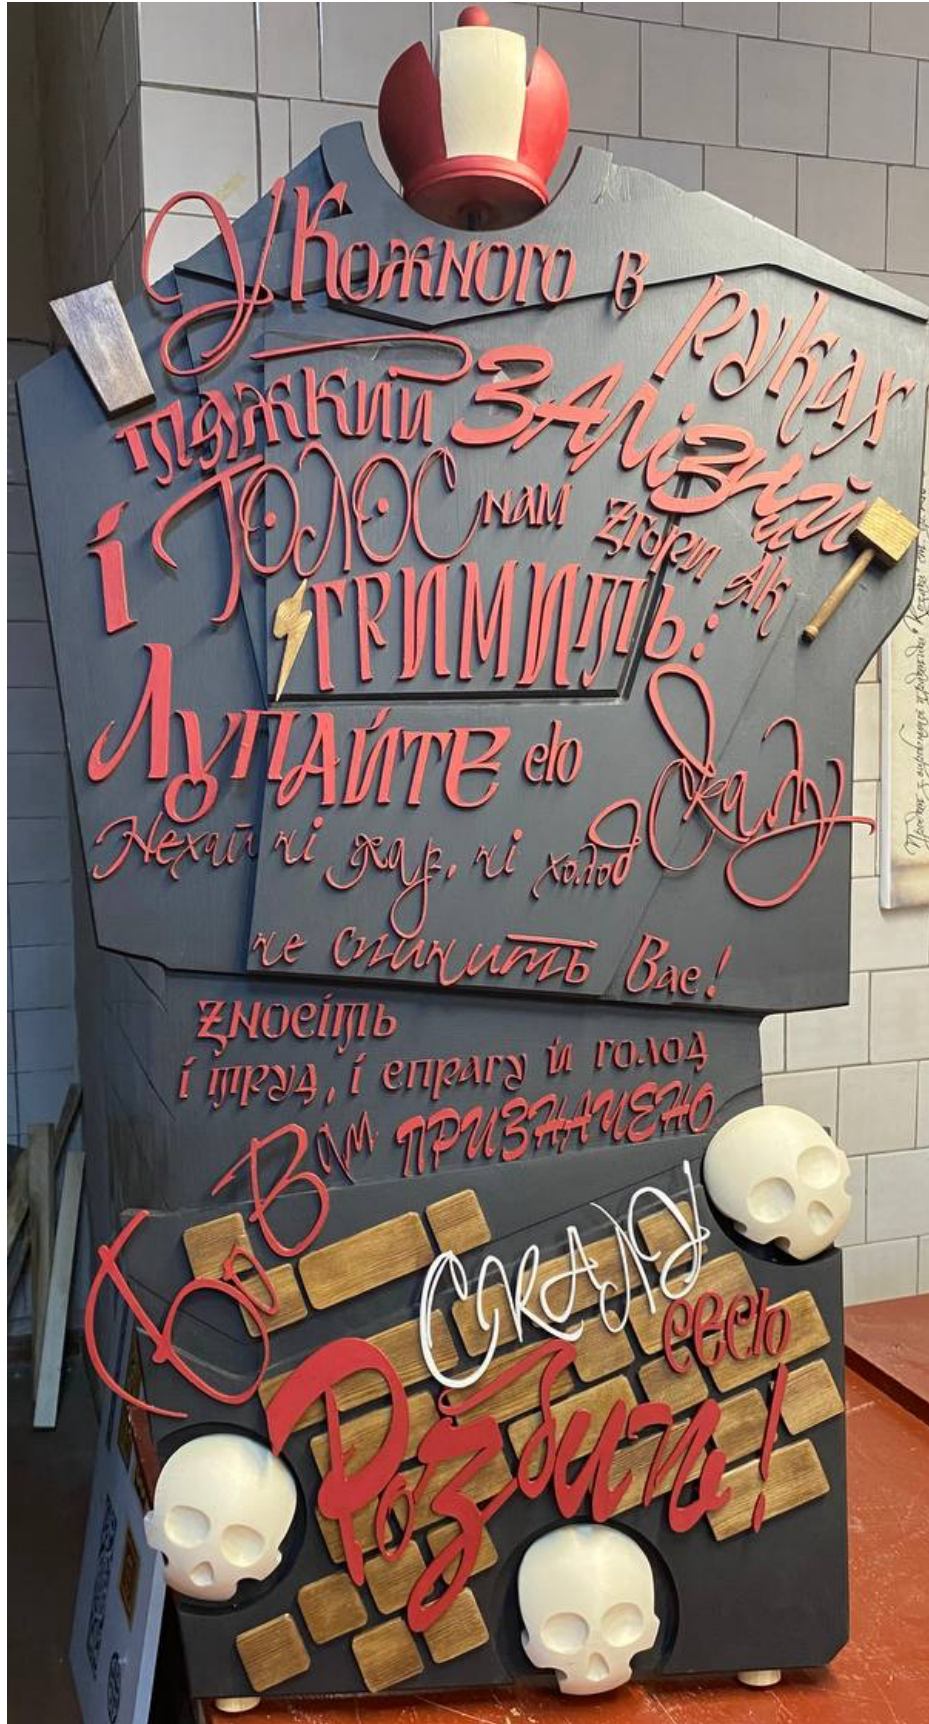 У Кожного в руках
тяжкий ЗАлізний
і ГОЛОС нам згори як
ГРИМИТЬ:
ЛупАйТЕ сю Скалу
Нехай ні жар, ні холод
не спинить Вас!
зносіть
і труд, і спрагу й голод
Бо Вам ПРИЗНАЧЕНО
СКАЛУ
сесю
Розбити!